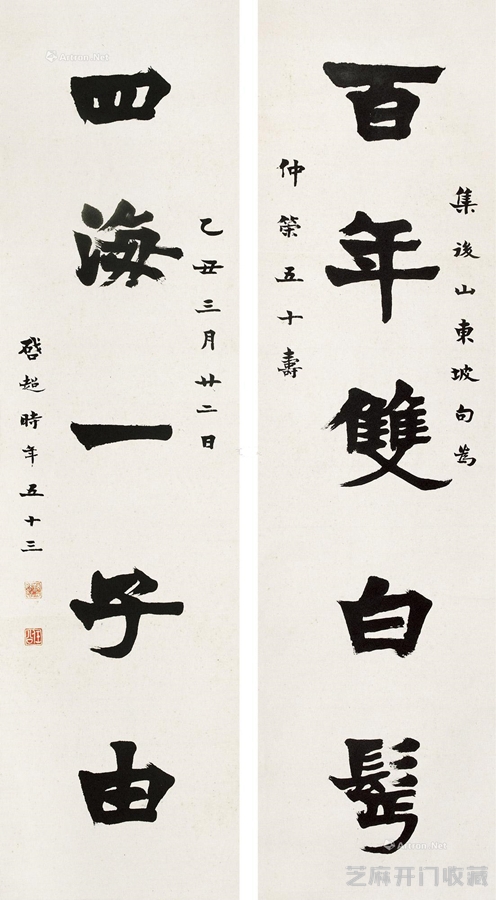 百年雙白鬢
集後山東坡句為
仲策五十壽
四海一子由
乙丑三月廿二日
啓超時年五十三
Artron.Net
Artron.Net
芝麻开门收藏